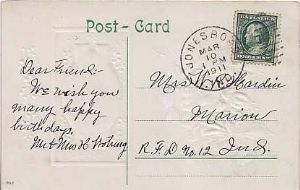 Post-Card
JONESBORO
MAR
10
PM
1911
IND.
Dear Friend:-
We wish you
many happy
birthdays.
Mr & Mrs H
Miss Hardin
Marion
R.F.D No. 12 Ind.